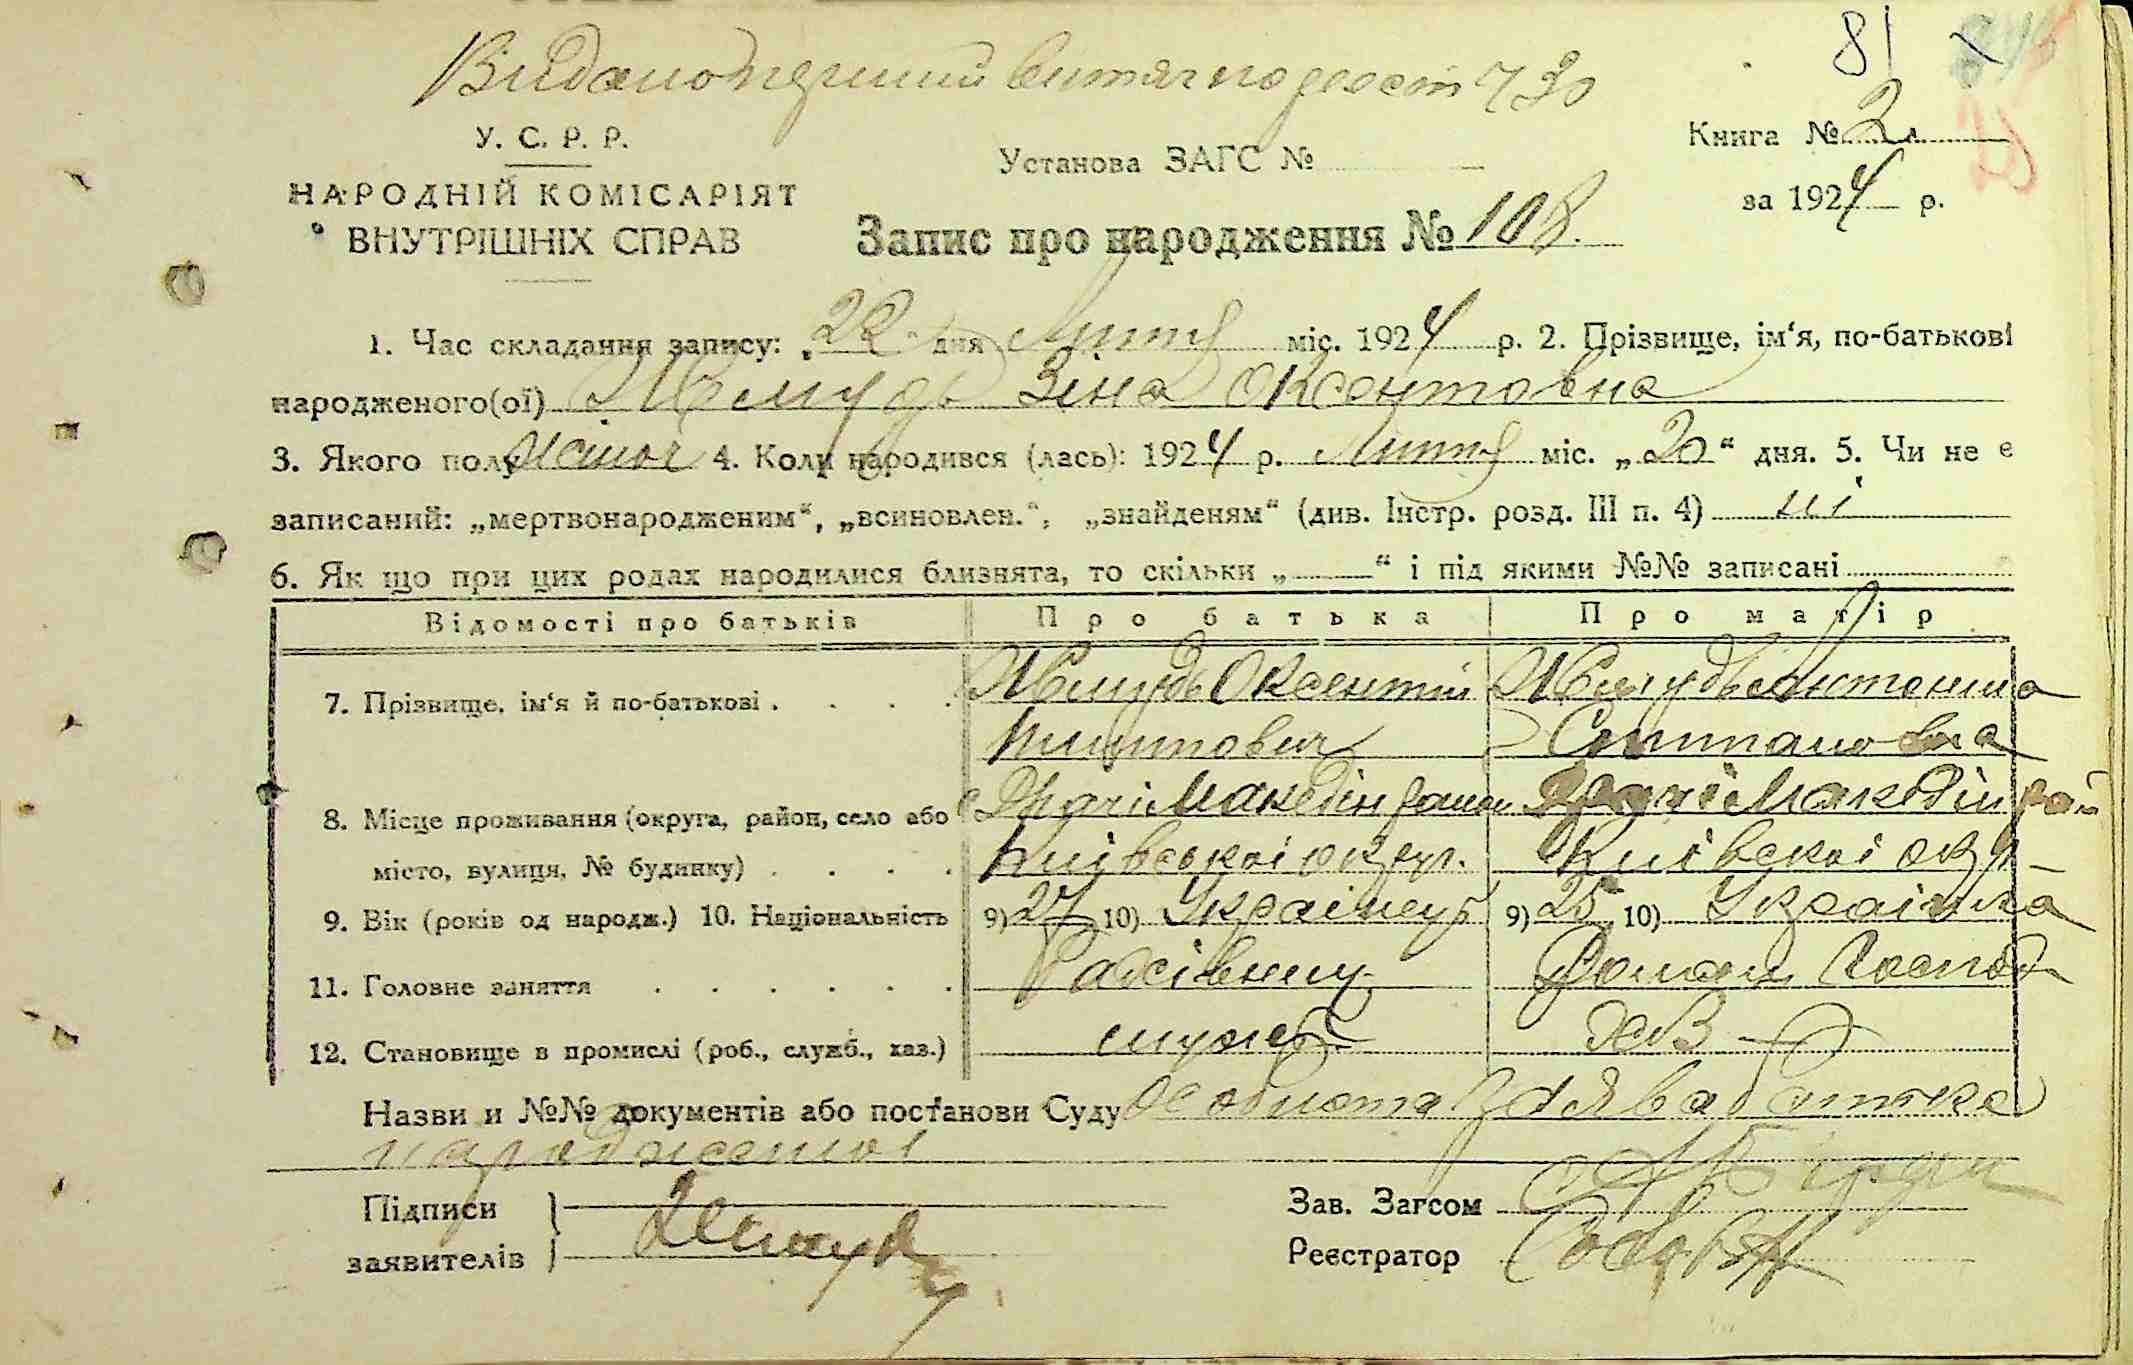 81
Видано перший витяг по реєст 730
У. С. Р. Р.
Книга № 2
Установа ЗАГС №
НАРОДНІЙ КОМІСАРІЯТ
за 1924 р.
ВНУТРІШНІХ СПРАВ
Запис про народження № 108.
1. Час складання запису: „22“ дня міс. 1924 р. 2. Прізвище, ім‘я, по-батькові
народженого(ої) Жмудь Зіна Оксентовна
3. Якого полу жіноч 4. Коли народився (лась): 1924 р. міс. „20“ дня. 5. Чи не є
записаний: „мертвонародженим“, „всиновлен.“, „знайденям“ (див. Інстр. розд. III п. 4) ні
6. Як що при цих родах народилися близнята, то скільки „—“ і під якими №№ записані
Відомості про батьків Про батька Про матір
7. Прізвище, ім‘я й по-батькові . . . . Жмудь Оксентій Жмудь Антонина
Степановна
8. Місце проживання (округа, район, село або Македін Македін рай
місто, вулиця, № будинку) . . . . Київської округ. Київскоі окр
9. Вік (років од народж.) 10. Національність 9) 27 10) Українець 9) 25 10) Українка
11. Головне заняття . . . . . . Домаш господ
12. Становище в промислі (роб., служб., хаз.) служб
Назви и №№ документів або постанови Суду Особиста заява батька
народженої
Підписи Зав. Загсом
заявителів Жмудь Реєстратор